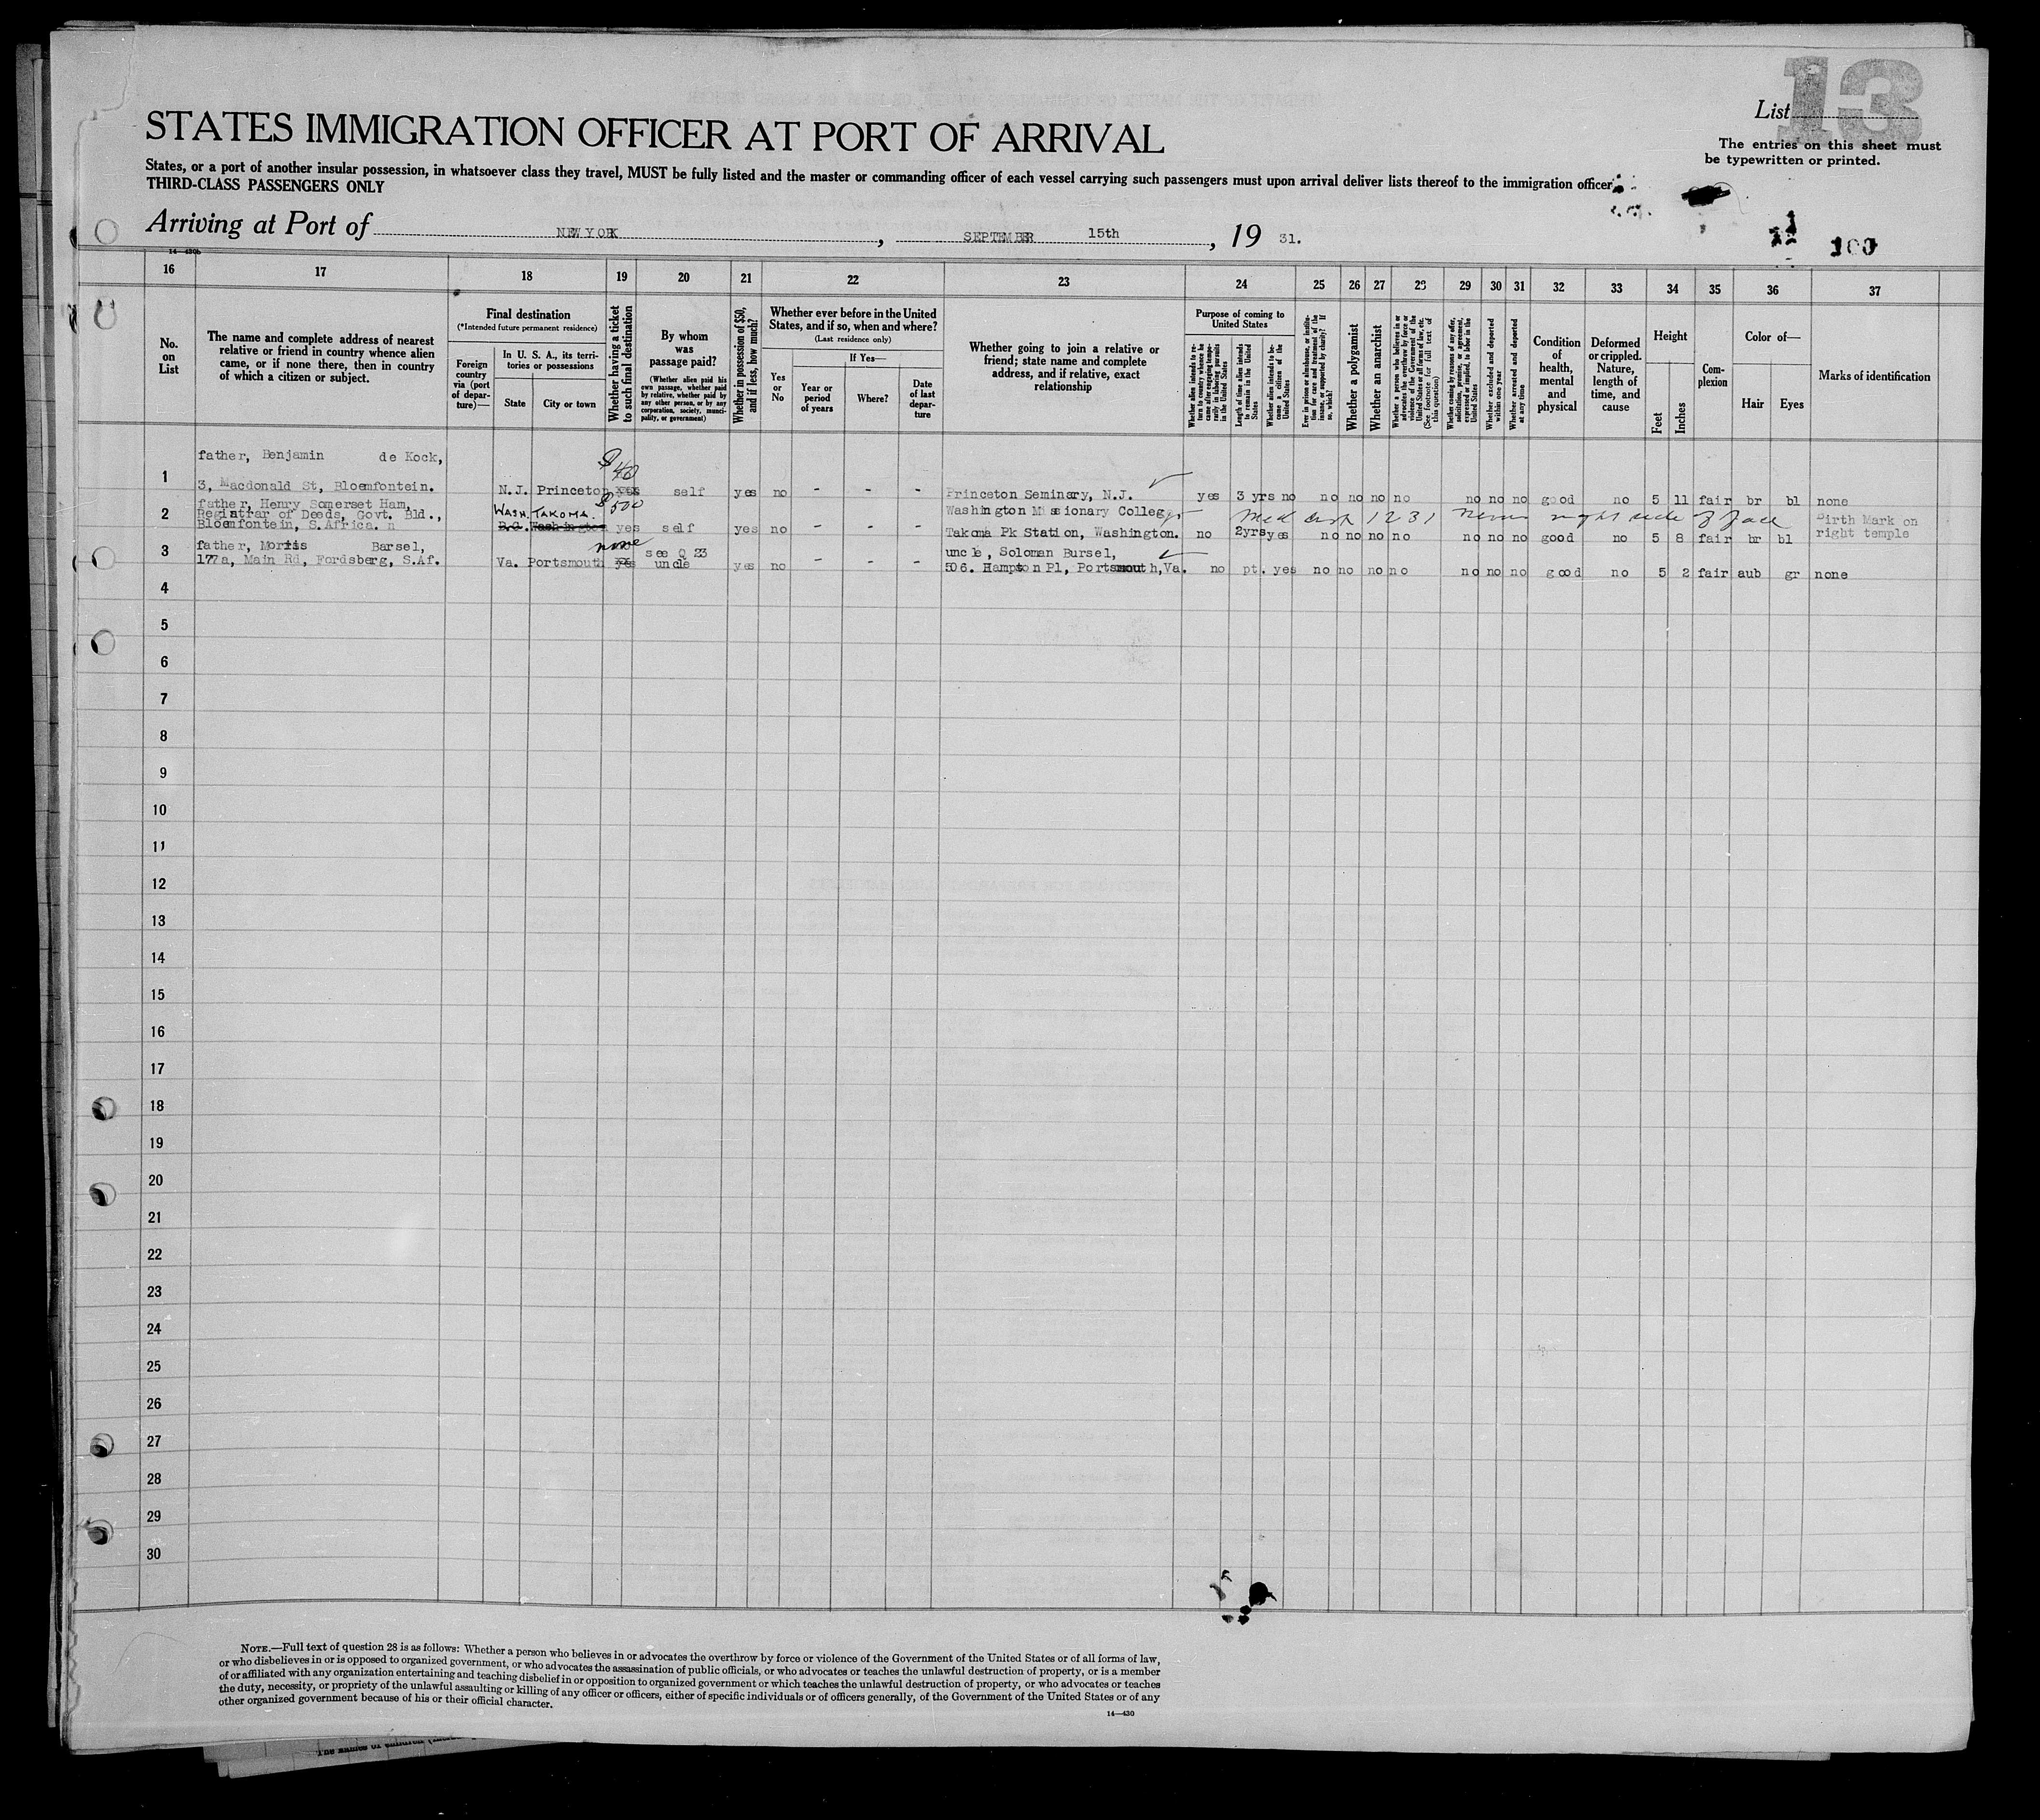 13
List
The entries on this sheet must
be typewritten or printed.
STATES IMMIGRATION OFFICER AT PORT OF ARRIVAL
States, or a port of another insular possession, in whatsoever class they travel, MUST be fully listed and the master or commanding officer of each vessel carrying such passengers must upon arrival deliver lists thereof to the immigration officer
THIRD-CLASS PASSENGERS ONLY
Arriving at Port of NEW YORK, SEPTEMBER 15th, 19 31.
100
14—430b
16 17 18 19 20 21 22 23 24 25 26 27 28 29 30 31 32 33 34 35 36 37
No. on List
The name and complete address of nearest relative or friend in country whence alien came, or if none there, then in country of which a citizen or subject.
Final destination
(*Intended future permanent residence)
Foreign country via (port of departure)—
In U. S. A., its territories or possessions
State
City or town
Whether having a ticket to such final destination
By whom was passage paid?
(Whether alien paid his own passage, whether paid by relative, whether paid by any other person, or by any corporation, society, municipality, or government)
Whether in possession of $50, and if less, how much?
Whether ever before in the United States, and if so, when and where?
(Last residence only)
Yes or No
If Yes—
Year or period of years
Where?
Date of last departure
Whether going to join a relative or friend; state name and complete address, and if relative, exact relationship
Purpose of coming to United States
Whether alien intends to return to country whence he came after engaging temporarily in laboring pursuits in the United States
Length of time alien intends to remain in the United States
Whether alien intends to become a citizen of the United States
Ever in prison or almshouse, or institution for care and treatment of the insane, or supported by charity? If so, which?
Whether a polygamist
Whether an anarchist
Whether a person who believes in or advocates the overthrow by force or violence of the Government of the United States or all forms of law, etc. (See footnote for full text of this question)
Whether coming by reasons of any offer, solicitation, promise, or agreement, expressed or implied, to labor in the United States
Whether excluded and deported within one year
Whether arrested and deported at any time
Condition of health, mental and physical
Deformed or crippled. Nature, length of time, and cause
Height
Feet
Inches
Complexion
Color of—
Hair
Eyes
Marks of identification
father, Benjamin de Kock,
$ 40
1 3, Macdonald St, Bloemfontein. N.J. Princeton yes self yes no - - - Princeton Seminary, N.J. yes 3 yrs no no no no no no no no good no 5 11 fair br bl none
father, Henry Somerset Ham, $500 Washington Missionary College,
2 Registrar of Deeds, Govt. Bld., WASH. TAKOMA. right side of face Birth Mark on
Bloemfontein, S.Africa. n D.C. Washington yes self yes no - - - Takoma Pk Station, Washington. no 2yrs yes no no no no no no no good no 5 8 fair br bl right temple
3 father, Morris Barsel, none see Q 23 uncle, Soloman Bursel,
177a, Main Rd, Fordsberg, S.Af. Va. Portsmouth yes uncle yes no - - - 506. Hampton Pl, Portsmouth, Va. no pt. yes no no no no no no no good no 5 2 fair aub gr none
4
5
6
7
8
9
10
11
12
13
14
15
16
17
18
19
20
21
22
23
24
25
26
27
28
29
30
NOTE.—Full text of question 28 is as follows: Whether a person who believes in or advocates the overthrow by force or violence of the Government of the United States or of all forms of law,
or who disbelieves in or is opposed to organized government, or who advocates the assassination of public officials, or who advocates or teaches the unlawful destruction of property, or is a member
of or affiliated with any organization entertaining and teaching disbelief in or opposition to organized government or which teaches the unlawful destruction of property, or who advocates or teaches
the duty, necessity, or propriety of the unlawful assaulting or killing of any officer or officers, either of specific individuals or of officers generally, of the Government of the United States or of any
other organized government because of his or their official character.
14—430